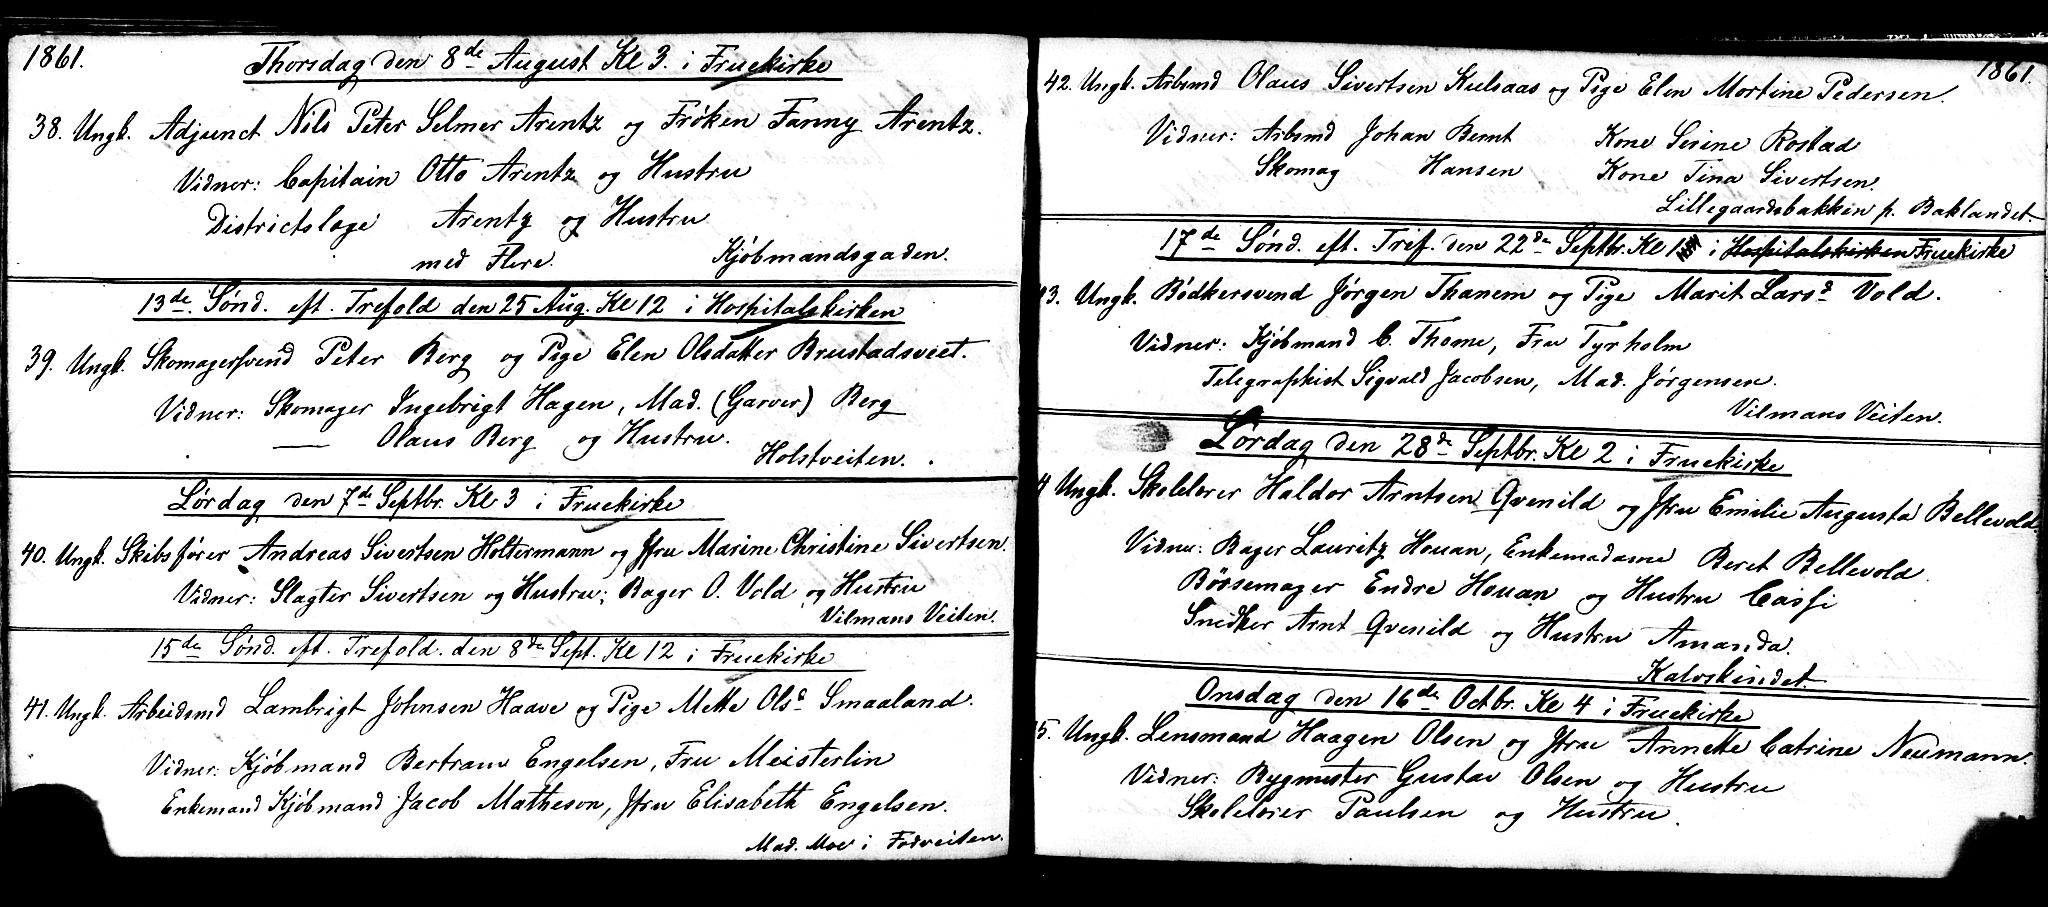 1861.
Thorsdag den 8de August Kl 3. i Fruekirke
38. Ungk. Adjunct Nils Peter Selmer Arentz og Frøken Fanny Arentz.
Vidner: Capitain Otto Arentz og Hustru
Districtslæge Arentz og Hustru
med Flere. Kjøbmandsgaden.
13de Sønd. eft. Trefold den 25 Aug. Kl 12 i Hospitalskirken
39. Ungk. Skomagersvend Peter Berg og Pige Elen Olsdatter Brustadsveet.
Vidner: Skomager Ingebrigt Hagen, Mad. (Garver) Berg
— Olaus Berg og Hustru.
Holstveiten.
Lørdag den 7de Septbr. Kl 3 i Fruekirke
40. Ungk. Skibsfører Andreas Sivertsen Holtermann og Jfru Marine Christine Sivertsen.
Vidner: Slagter Sivertsen og Hustru; Bager O. Vold og Hustru
Vilmans Veiten.
15de Sønd. eft. Trefold. den 8de Sept. Kl 12 i Fruekirke
41. Ungk. Arbeidsmd Lambrigt Johnsen Haave og Pige Mette Olsd Smaaland.
Vidner: Kjøbmand Bertram Engelsen, Fru Meisterlin
Enkemand Kjøbmand Jacob Matheson, Jfru Elisabeth Engelsen.
Mad. Moe i Fodveiten.
1861.
42. Ungk. Arbsmd Olaus Sivertsen Kulsaas og Pige Elen Mortine Pedersen.
Vidner: Arbsmd Johan Bernt Kone Serine Rostad
Skomag Hansen Kone Tina Sivertsen.
Lillegaardsbakken p. Baklandet.
17de Sønd. eft. Tref. den 22de Septbr. Kl 1 i Hospitalskirken Fruekirke
3. Ungk. Bødkersvend Jørgen Thanem og Pige Marit Larsd Vold.
Vidner: Kjøbmand C. Thome, Fru Tyrholm
Telegraphist Sigvald Jacobsen, Mad. Jørgensen.
Vilmans Veiten.
Lørdag den 28de Septbr. Kl 2 i Fruekirke
4 Ungk. Skolelærer Haldor Arntsen Qvenild og Jfru Emilie Augusta Bellevold.
Vidner: Bager Lauritz Houan, Enkemadame Beret Bellevold.
Børsemager Endre Houan og Hustru Cassi
Snedker Arnt Qvenild og Hustru Amanda.
Kalvskindet.
Onsdag den 16de Octbr. Kl 4 i Fruekirke
5. Ungk. Lensmand Haagen Olsen og Jfru Annette Catrine Neumann.
Vidner: Bygmester Gustav Olsen og Hustru
Skolelærer Paulsen og Hustru.